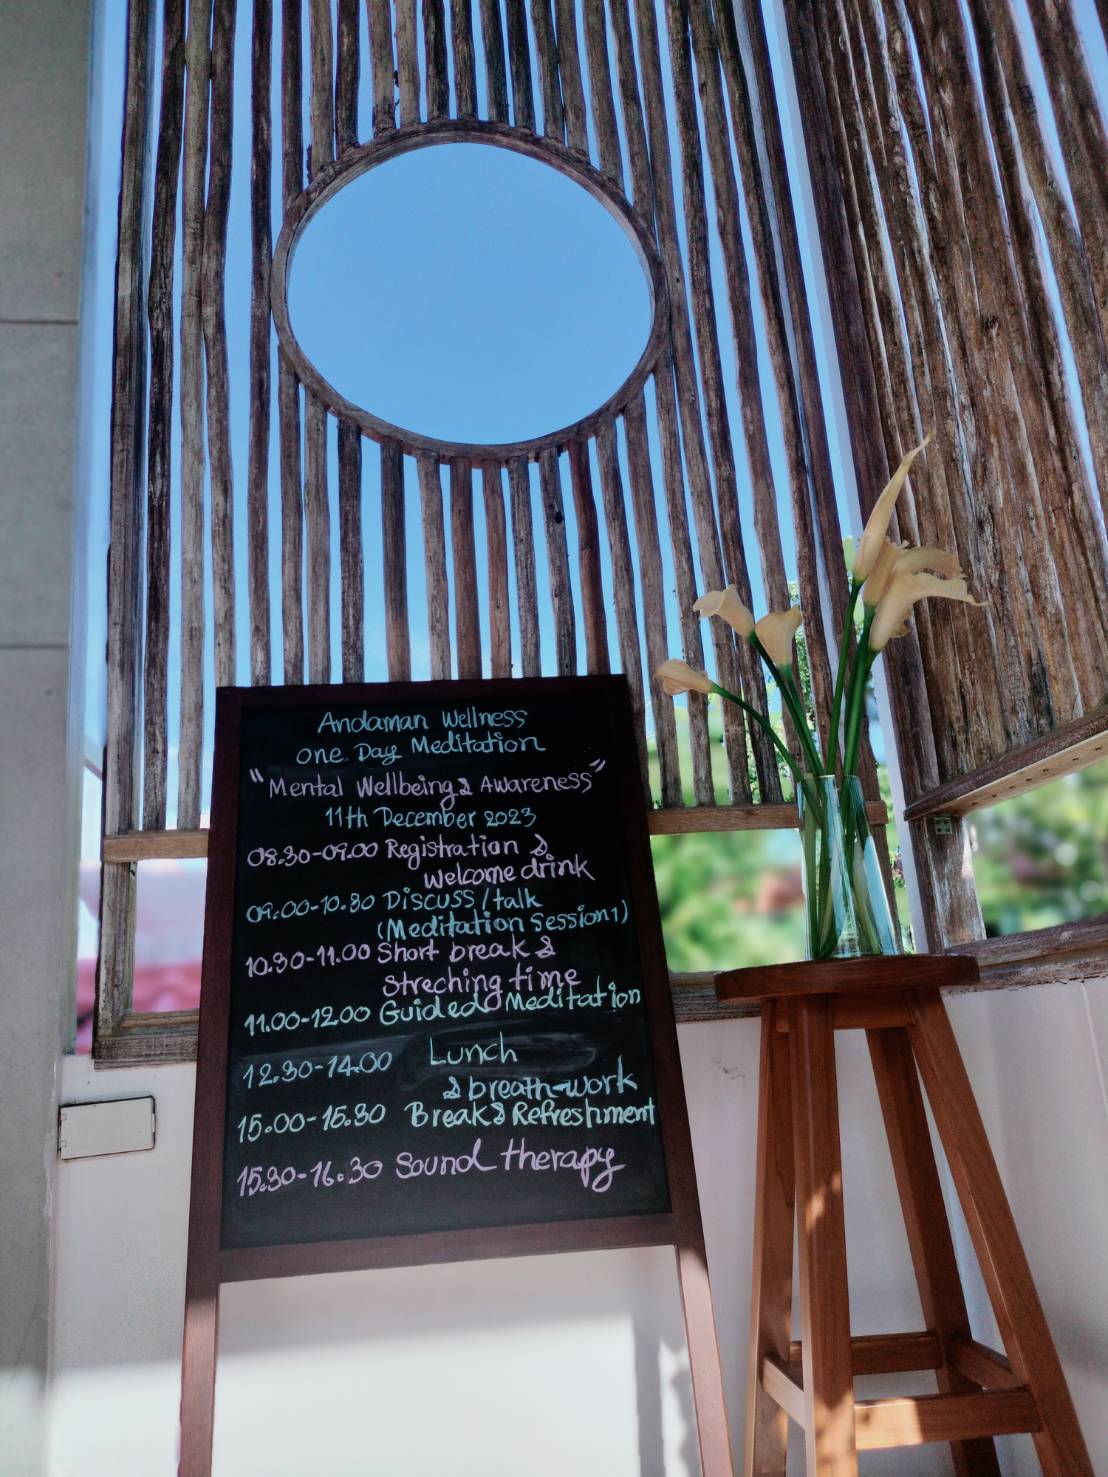 Andaman Wellness
One Day Meditation
"Mental Wellbeing & Awareness"
11th December 2023
08.30-09.00 Registration &
welcome drink
09.00-10.30 Discuss/talk
(Meditation Session1)
10.30-11.00 Short break &
Streching time
11.00-12.00 Guided Meditation
12.30-14.00 Lunch
& breath-work
15.00-15.30 Break & Refreshment
15.30-16.30 Sound therapy